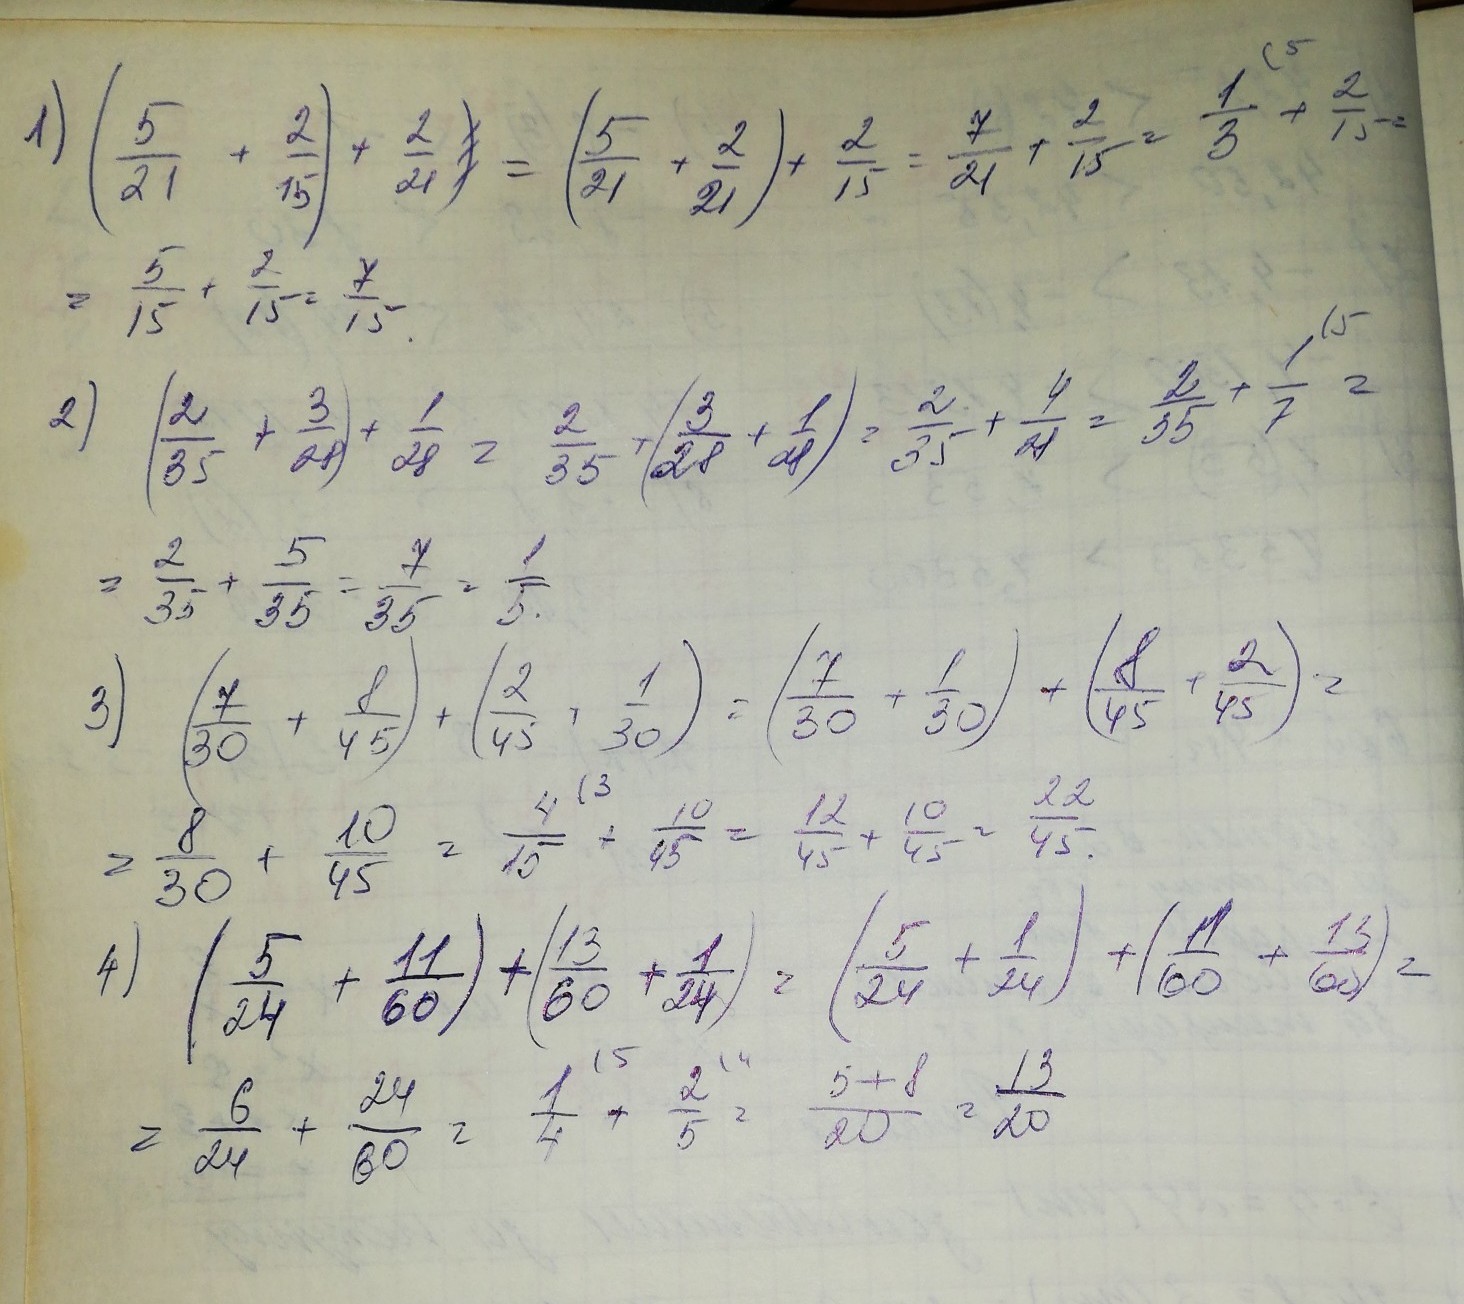 1) (5/21 + 2/15) + 2/21 = (5/21 + 2/21) + 2/15 = 7/21 + 2/15 = 1/3 (5 + 2/15 =
= 5/15 + 2/15 = 7/15.
2) (2/35 + 3/28) + 1/28 = 2/35 + (3/28 + 1/28) = 2/35 + 4/28 = 2/35 + 1/7 (5 =
= 2/35 + 5/35 = 7/35 = 1/5.
3) (7/30 + 8/45) + (2/45 + 1/30) = (7/30 + 1/30) + (8/45 + 2/45) =
= 8/30 + 10/45 = 4/15 (3 + 10/45 = 12/45 + 10/45 = 22/45.
4) (5/24 + 11/60) + (13/60 + 1/24) = (5/24 + 1/24) + (11/60 + 13/60) =
= 6/24 + 24/60 = 1/4 (5 + 2/5 (4 = 5+8/20 = 13/20